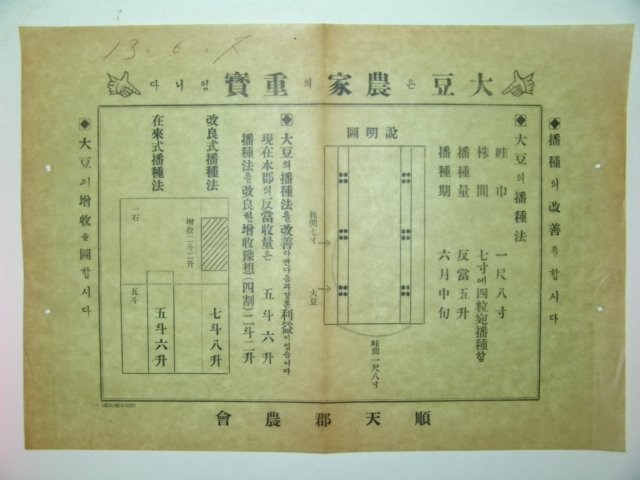 大豆은農家의重寶입니다
13.6.
◆播種의改善을합시다
◆大豆의播種法
畦巾 一尺八寸
株間 七寸에四粒宛播種함
播種量 反當五升
播種期 六月中旬
說明圖
株間七寸
大豆
畦間一尺八寸
◆大豆의播種法을改善하면다음과갓흔利益이잇슴니다
現在本郡의反當收量은 五斗六升
播種法을改良한增收豫想(四割)二斗二升
改良式播種法
在來式播種法
增收二斗二升
七斗八升
五斗六升
一石
五斗
◆大豆의增收을圖합시다
順天郡農會